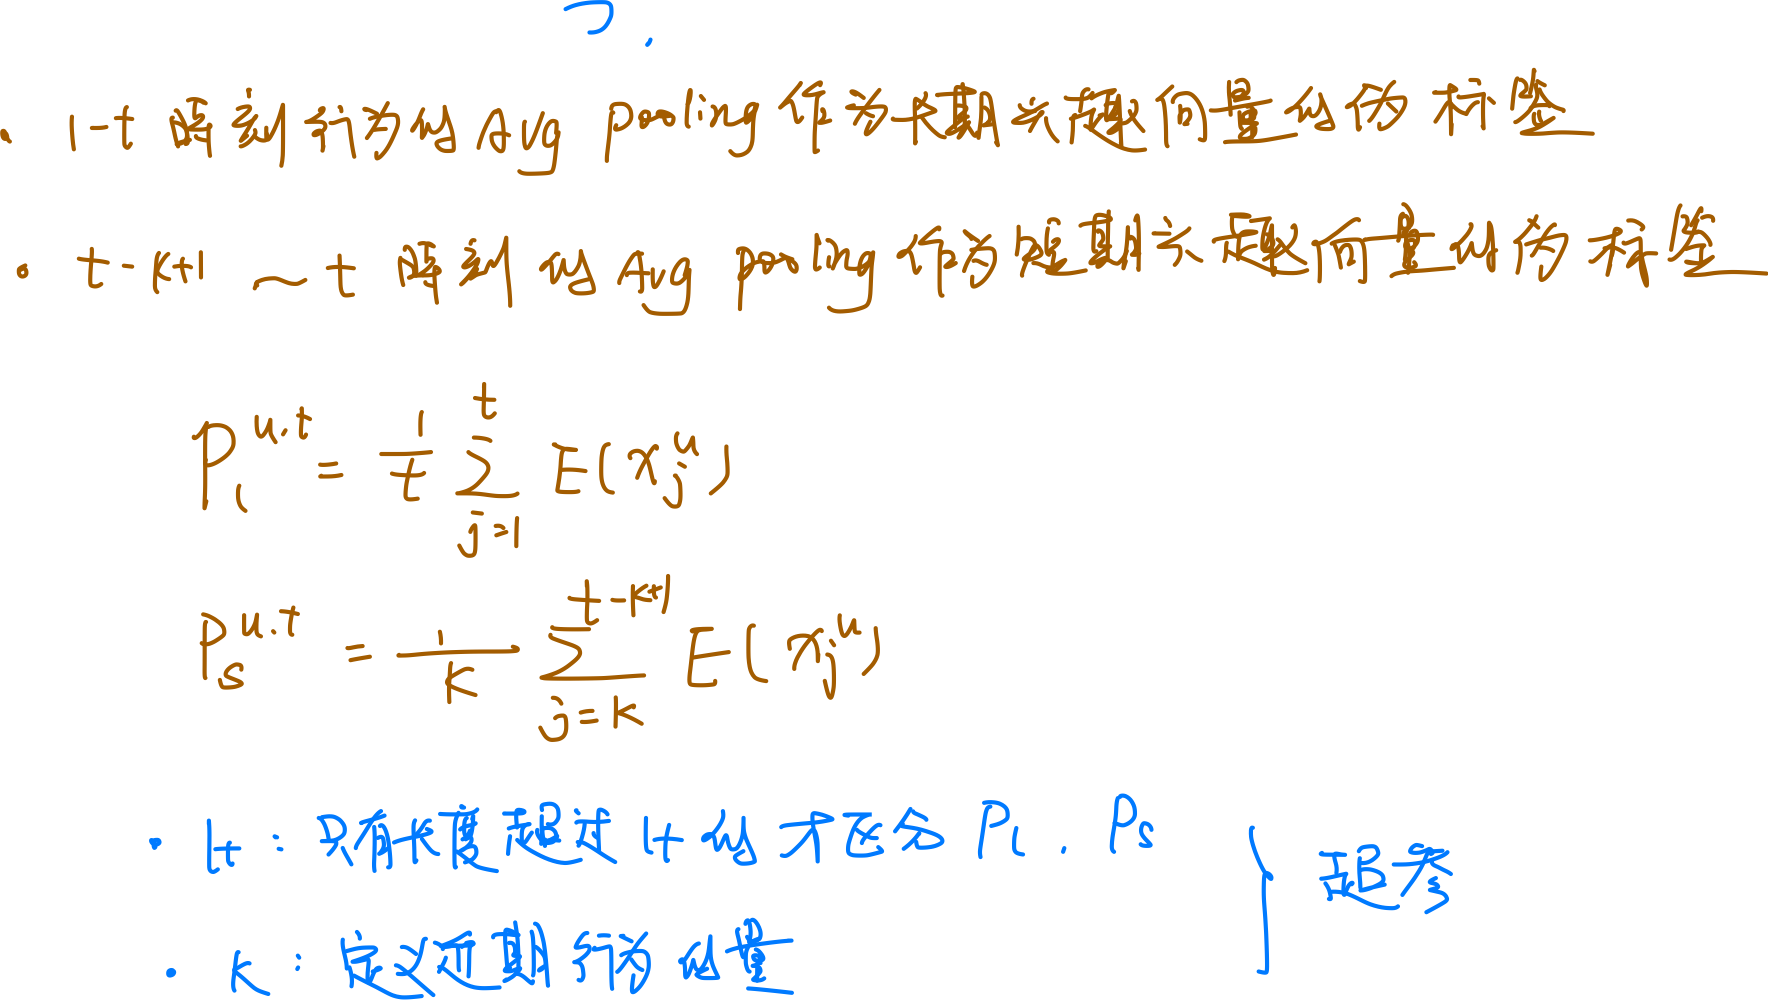 · 1-t 时刻行为的 Avg pooling 作为长期兴趣向量的伪标签
· t-k+1 ~ t 时刻的 Avg pooling 作为短期兴趣向量的伪标签
P_l^{u,t} = \frac{1}{t} \sum_{j=1}^{t} E(x_j^u)
P_s^{u,t} = \frac{1}{k} \sum_{j=k}^{t-k+1} E(x_j^u)
· lt : 只有长度超过 lt 的才区分 Pl, Ps
超参
· k : 定义近期行为的量